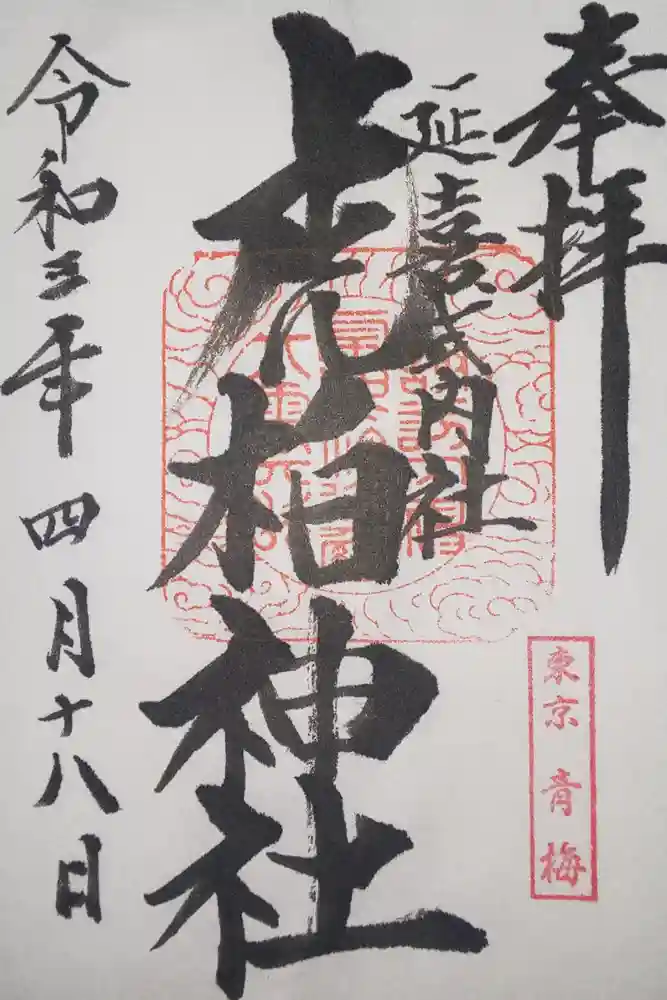 奉拝
延喜式内社
虎柏神社
令和三年 四月十八日
東京 青梅